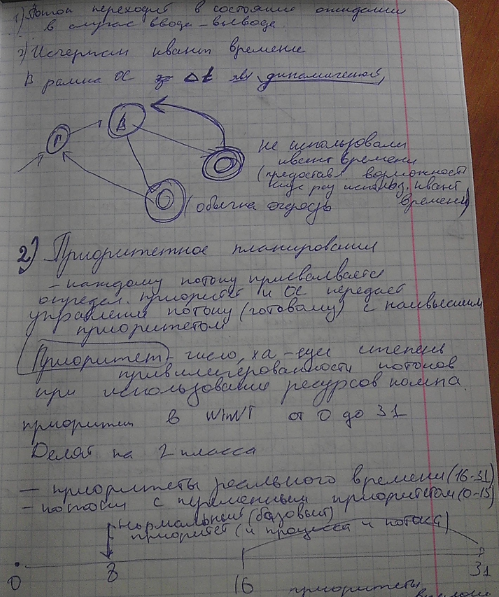 1) Поток переходит в состояние ожидания
в случае ввода-вывода
2) Исчерпан квант времени
В рамках ОС Δt явл динамической
П
А
О
О
не использовали
квант времени
(предостав возможность
еще раз использ. квант
времени)
(обычная очередь
2) Приоритетное планирование
- каждому потоку присваивается
определ. приоритет и ОС передает
управление потоку (готовому) с наивысшим
приоритетом
Приоритет - число, ха-щее степень
привилегированности потоков
при использовании ресурсов компа.
приоритет в WinNT от 0 до 31
Делят на 2 класса
- приоритеты реального времени (16-31)
- потоки с переменным приоритетом (0-15)
нормальный (базовый)
приоритет (и процесса и потока)
0 8 16 31
приоритеты